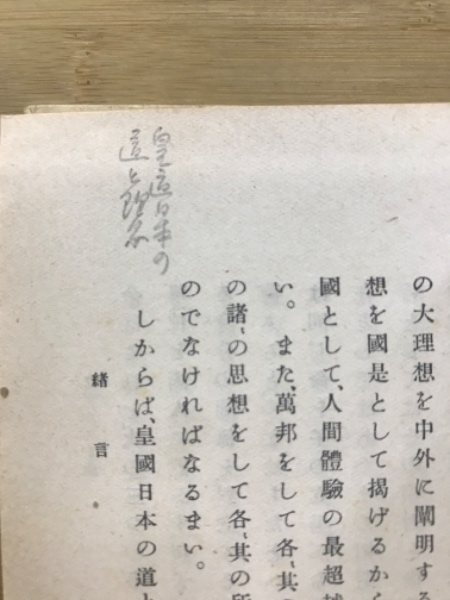 の大理想を中外に闡明する
想を國是として揭げるから
國として、人間體驗の最超越
い。また、萬邦をして各〻其の
の諸〻の思想をして各〻其の所
のでなければなるまい。
しからば、皇國日本の道と
緖言
皇道日本の
道と理念